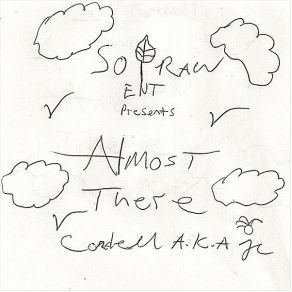 SO RAW
ENT
Presents
Almost
There
Cordell A.K.A JC